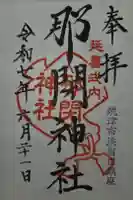 奉拝
延喜式内
焼津市浜當目鎮座
那閇神社
那閇
神社
令和七年六月二十一日